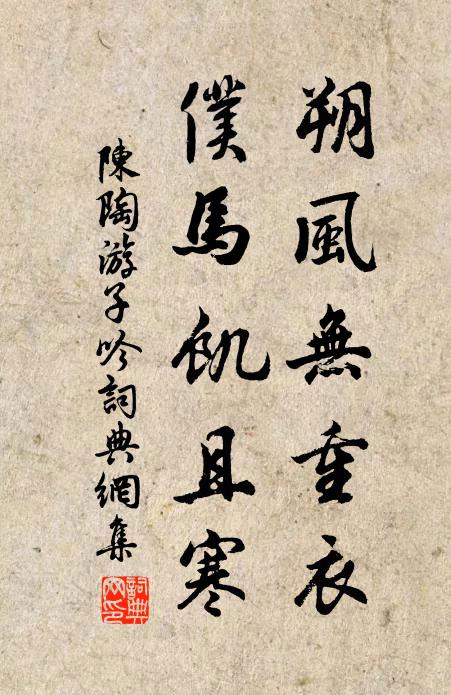 朔風無重衣
僕馬飢且寒
陳陶游子吟詞典網集
詞典網印